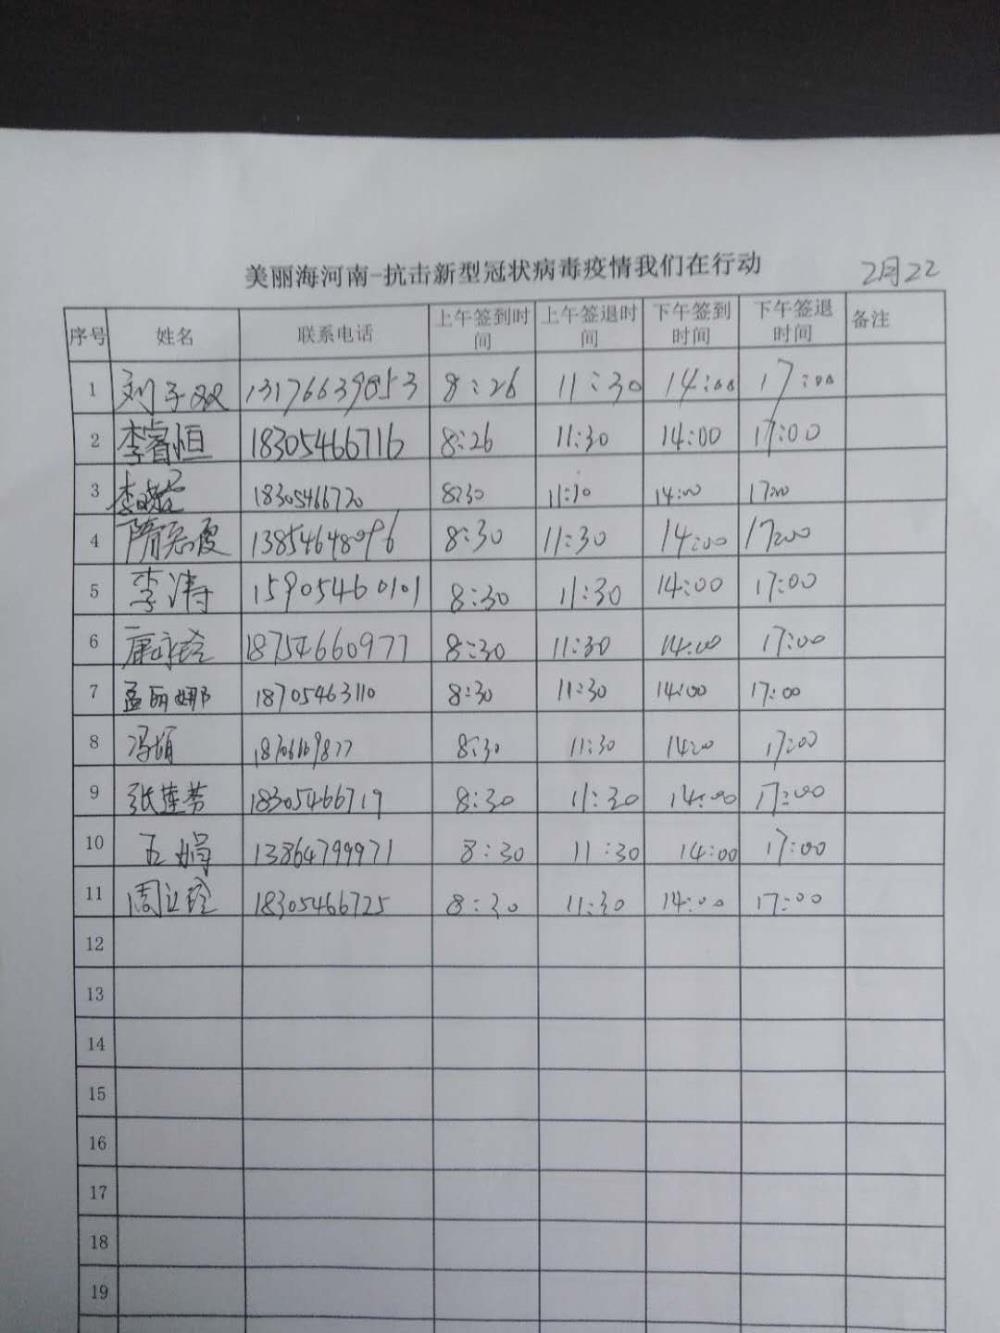 美丽海河南-抗击新型冠状病毒疫情我们在行动 2月22
序号 姓名 联系电话 上午签到时间 上午签退时间 下午签到时间 下午签退时间 备注
1 刘子双 13176639853 8:26 11:30 14:00 17:00
2 李睿恒 18305466716 8:26 11:30 14:00 17:00
3 18305466720 8:30 11:30 14:00 17:00
4 隋志霞 13854648096 8:30 11:30 14:00 17:00
5 李涛 15905460101 8:30 11:30 14:00 17:00
6 18754660977 8:30 11:30 14:00 17:00
7 孟丽娜 18705463110 8:30 11:30 14:00 17:00
8 冯娟 8:30 11:30 14:00 17:00
9 张莲芳 18305466719 8:30 11:30 14:00 17:00
10 王娟 13864799971 8:30 11:30 14:00 17:00
11 周立玲 18305466725 8:30 11:30 14:00 17:00
12
13
14
15
16
17
18
19